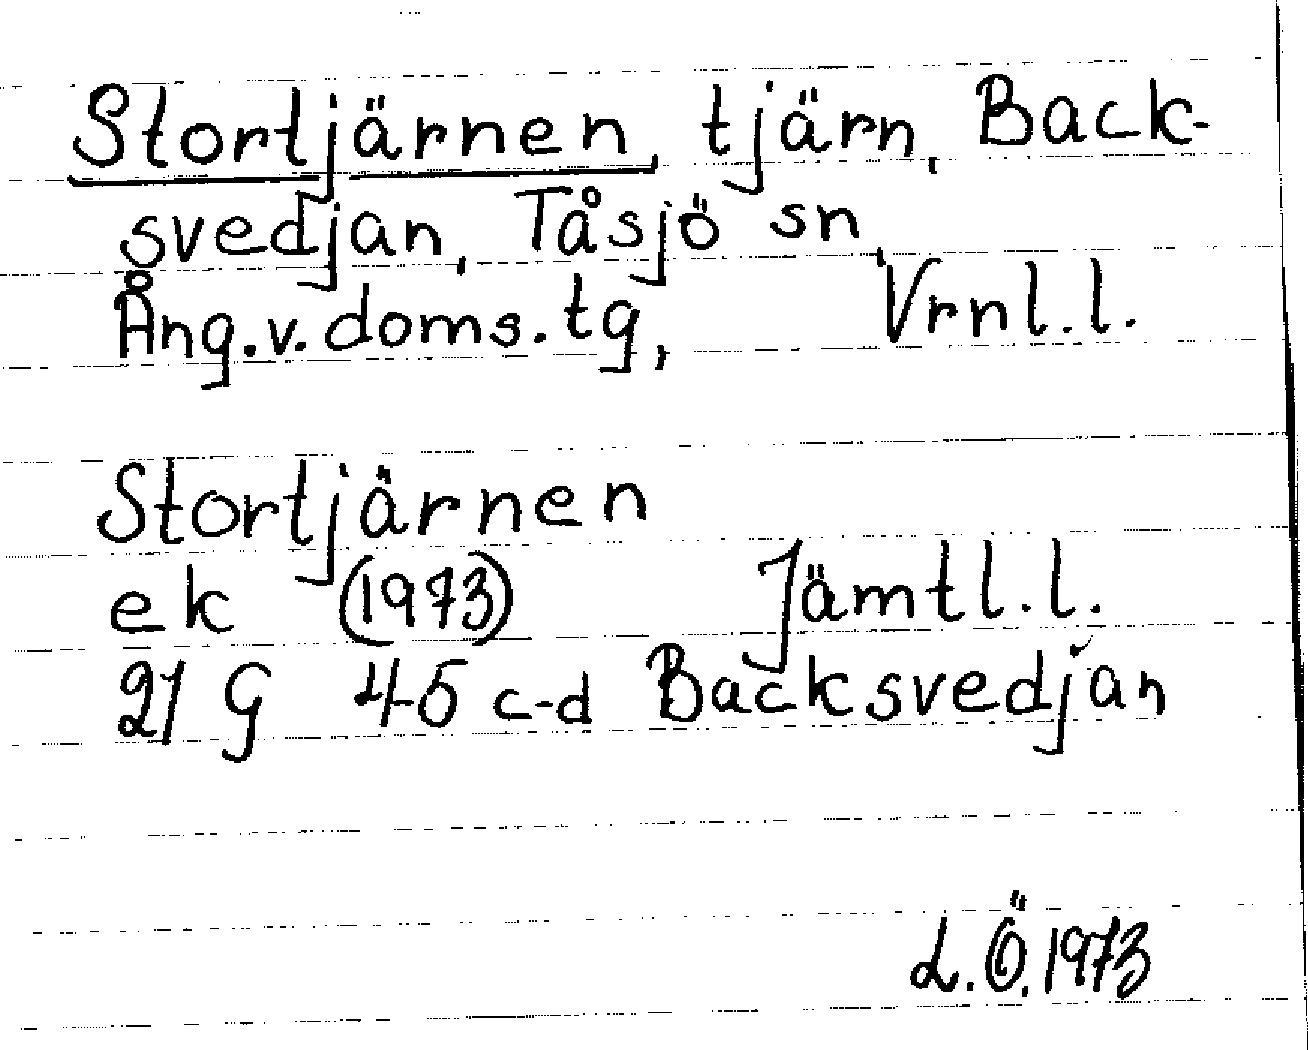 Stortjärnen, tjärn, Back-
svedjan, Tåsjö sn,
Ång.v.doms.tg, Vrnl.l.
Stortjärnen
ek (1973) Jämtl.l.
21 G 4-5 c-d Backsvedjan
L.Ö.1973